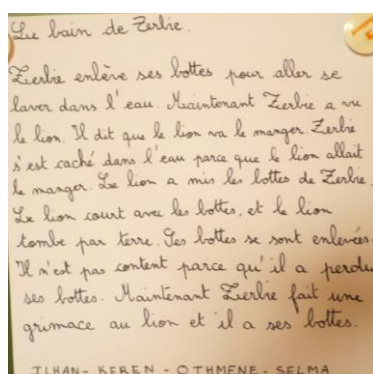 Le bain de Zerbie.
Zerbie enlève ses bottes pour aller se
laver dans l'eau. Maintenant Zerbie a vu
le lion. Il dit que le lion va le manger. Zerbie
s'est caché dans l'eau parce que le lion allait
le manger. Le lion a mis les bottes de Zerbie.
Le lion court avec les bottes, et le lion
tombe par terre. Ses bottes se sont enlevées.
Il n'est pas content parce qu'il a perdu
ses bottes. Maintenant Zerbie fait une
grimace au lion et il a ses bottes.
ILHAN - KEREN - OTHMENE - SELMA